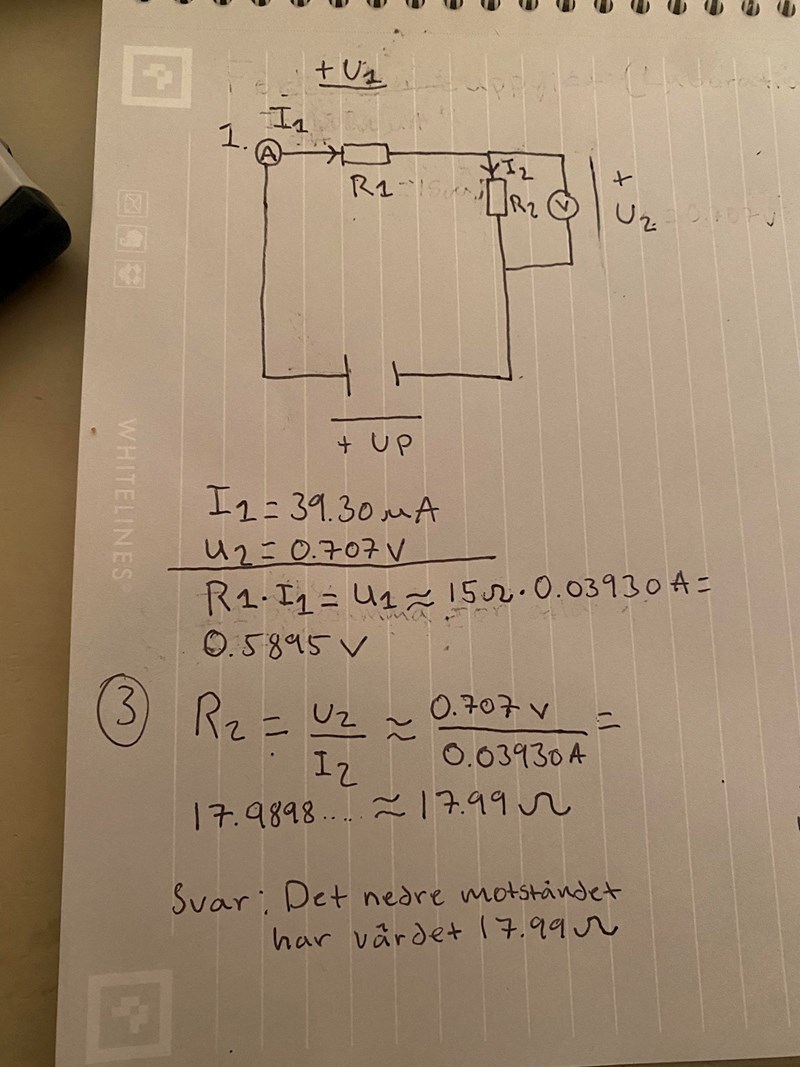 + U1
1.
I1
A
R1
I2
R2
V
+
U2
+ UP
I1 = 39.30 μA
U2 = 0.707 V
R1 · I1 = U1 ≈ 15Ω · 0.03930 A =
0.5895 V
③ R2 = U2 / I2 ≈ 0.707 V / 0.03930 A =
17.9898.... ≈ 17.99 Ω
Svar: Det nedre motståndet
har värdet 17.99 Ω
WHITELINES